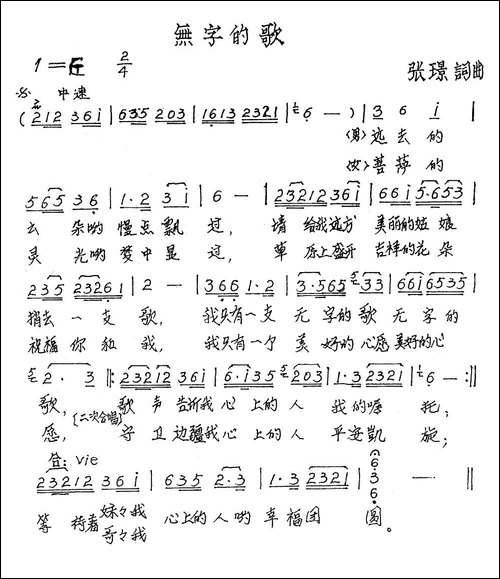 無字的歌
1=E 2/4
张璟詞曲
中速
(212 36i | 635 203 | 1613 2321 | 6 — ) | 3 6 i |
(男)远去的
(女)菩萨的
565 36 | 1·2 3i | 6 — | 23212 36i | 66i 5·653 |
云朵哟慢点飘过，请给我远方美丽的姑娘
灵光哟梦中显过，草原上盛开吉祥的花朵
235 23261 | 2 — | 366 1·2 | 3·565 33 | 66i 6535 |
捎去一支歌，我只有一支无字的歌无字的
祝福你和我，我只有一个美好的心愿美好的心
2· 3 ‖: 23212 36i | 6·i35 203 | 1·3 2321 | 6 — :‖
歌，(二次合唱)歌声告訴我心上的人我的嘱托；
愿，守卫边疆我心上的人平安凯旋；
vie
23212 36i | 635 2·3 | 1·3 2321 | 6 3 6 — ‖
等待着妹々我心上的人哟幸福团圆。
哥々我